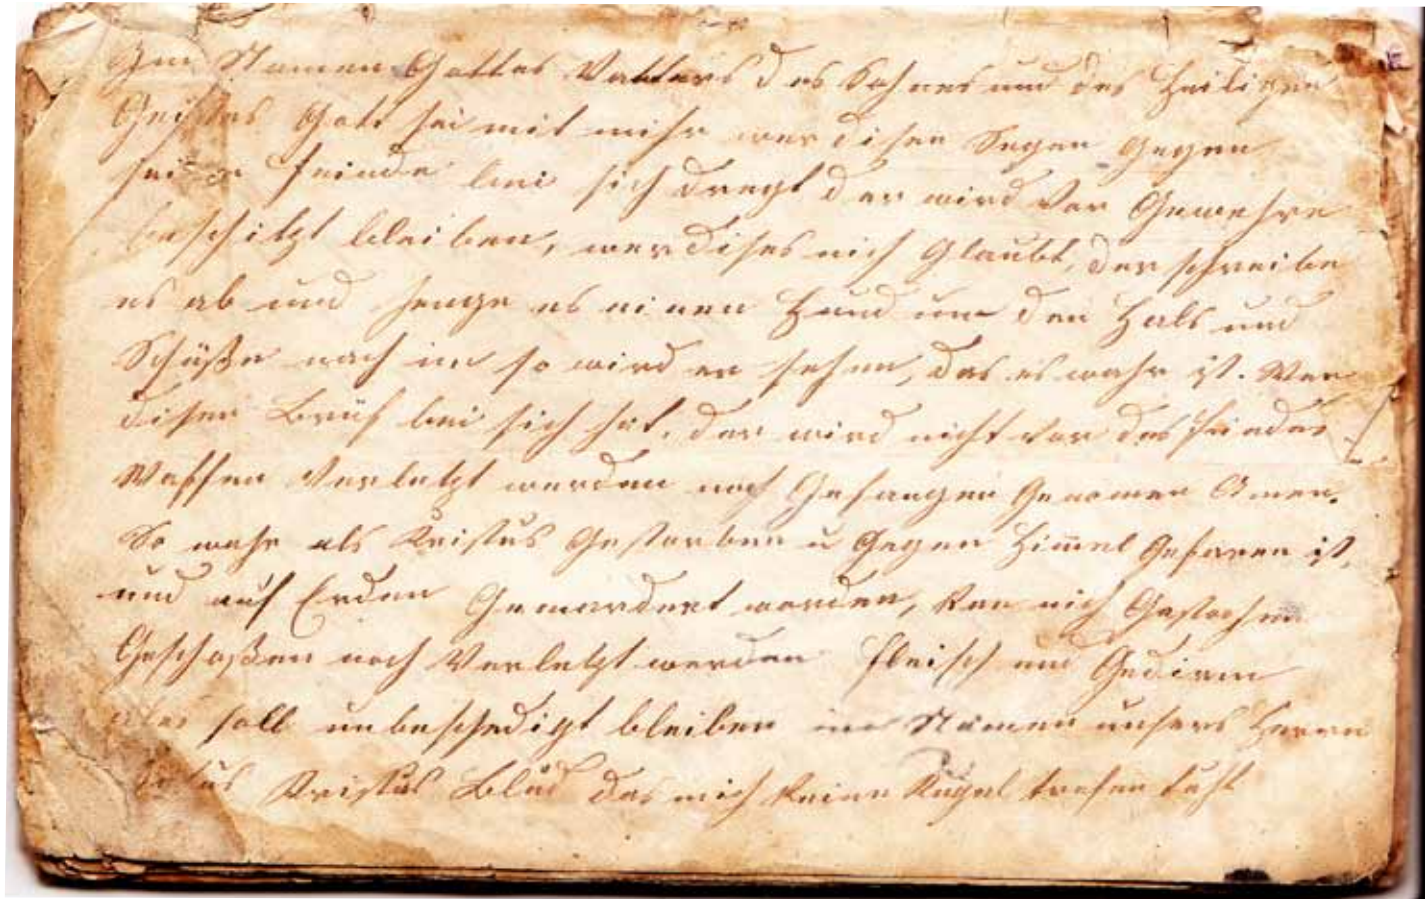 Im Namen Gottes Vatters des Sohnes und des Heiligen
Geistes Gott sei mit mihr wer disen Segen gegen
seine Feinde bei sich dregt der wird vor Gewehre
beschitzt bleiben, wer dises nich Glaubt, der schreibe
es ab und henge es einen Hund um den Hals und
Schüße nach im so wird er sehen, das es wahr ist. Wer
disen Brüf bei sich hat, der wird nicht von des Feindes
Waffen Verletzt werden noch Gefangen Genomen Amen.
So wahr als Kristus Gestorben u Gegen Himmel Gefaren ist,
und auf Erden Gemardert worden, kan nich Gestochen
Geschoßen noch Verletzt werden Fleisch und Gedirm
ales soll unbeschedigt bleiben im Namen unsers Herrn
Kristus Blud das mich keine Kugel trefen tuht